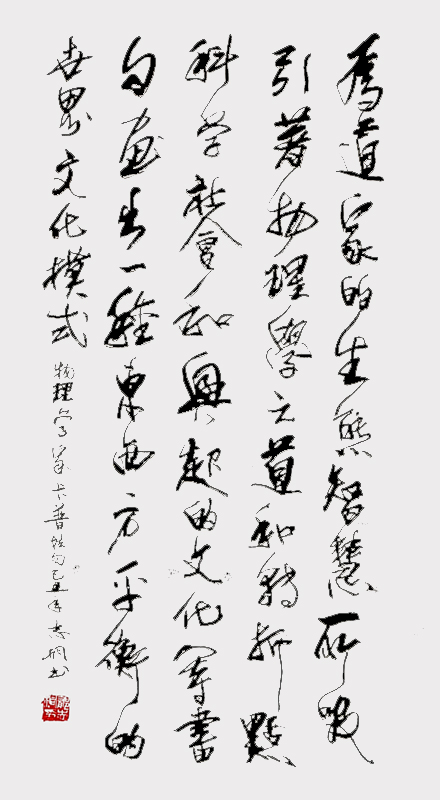 為道家的生態智慧所吸
引著物理學之道和轉折點
科学社會和興起的文化等書
勾画出一種東西方平衡的
世界文化模式
物理学家卡普拉句己丑年志书